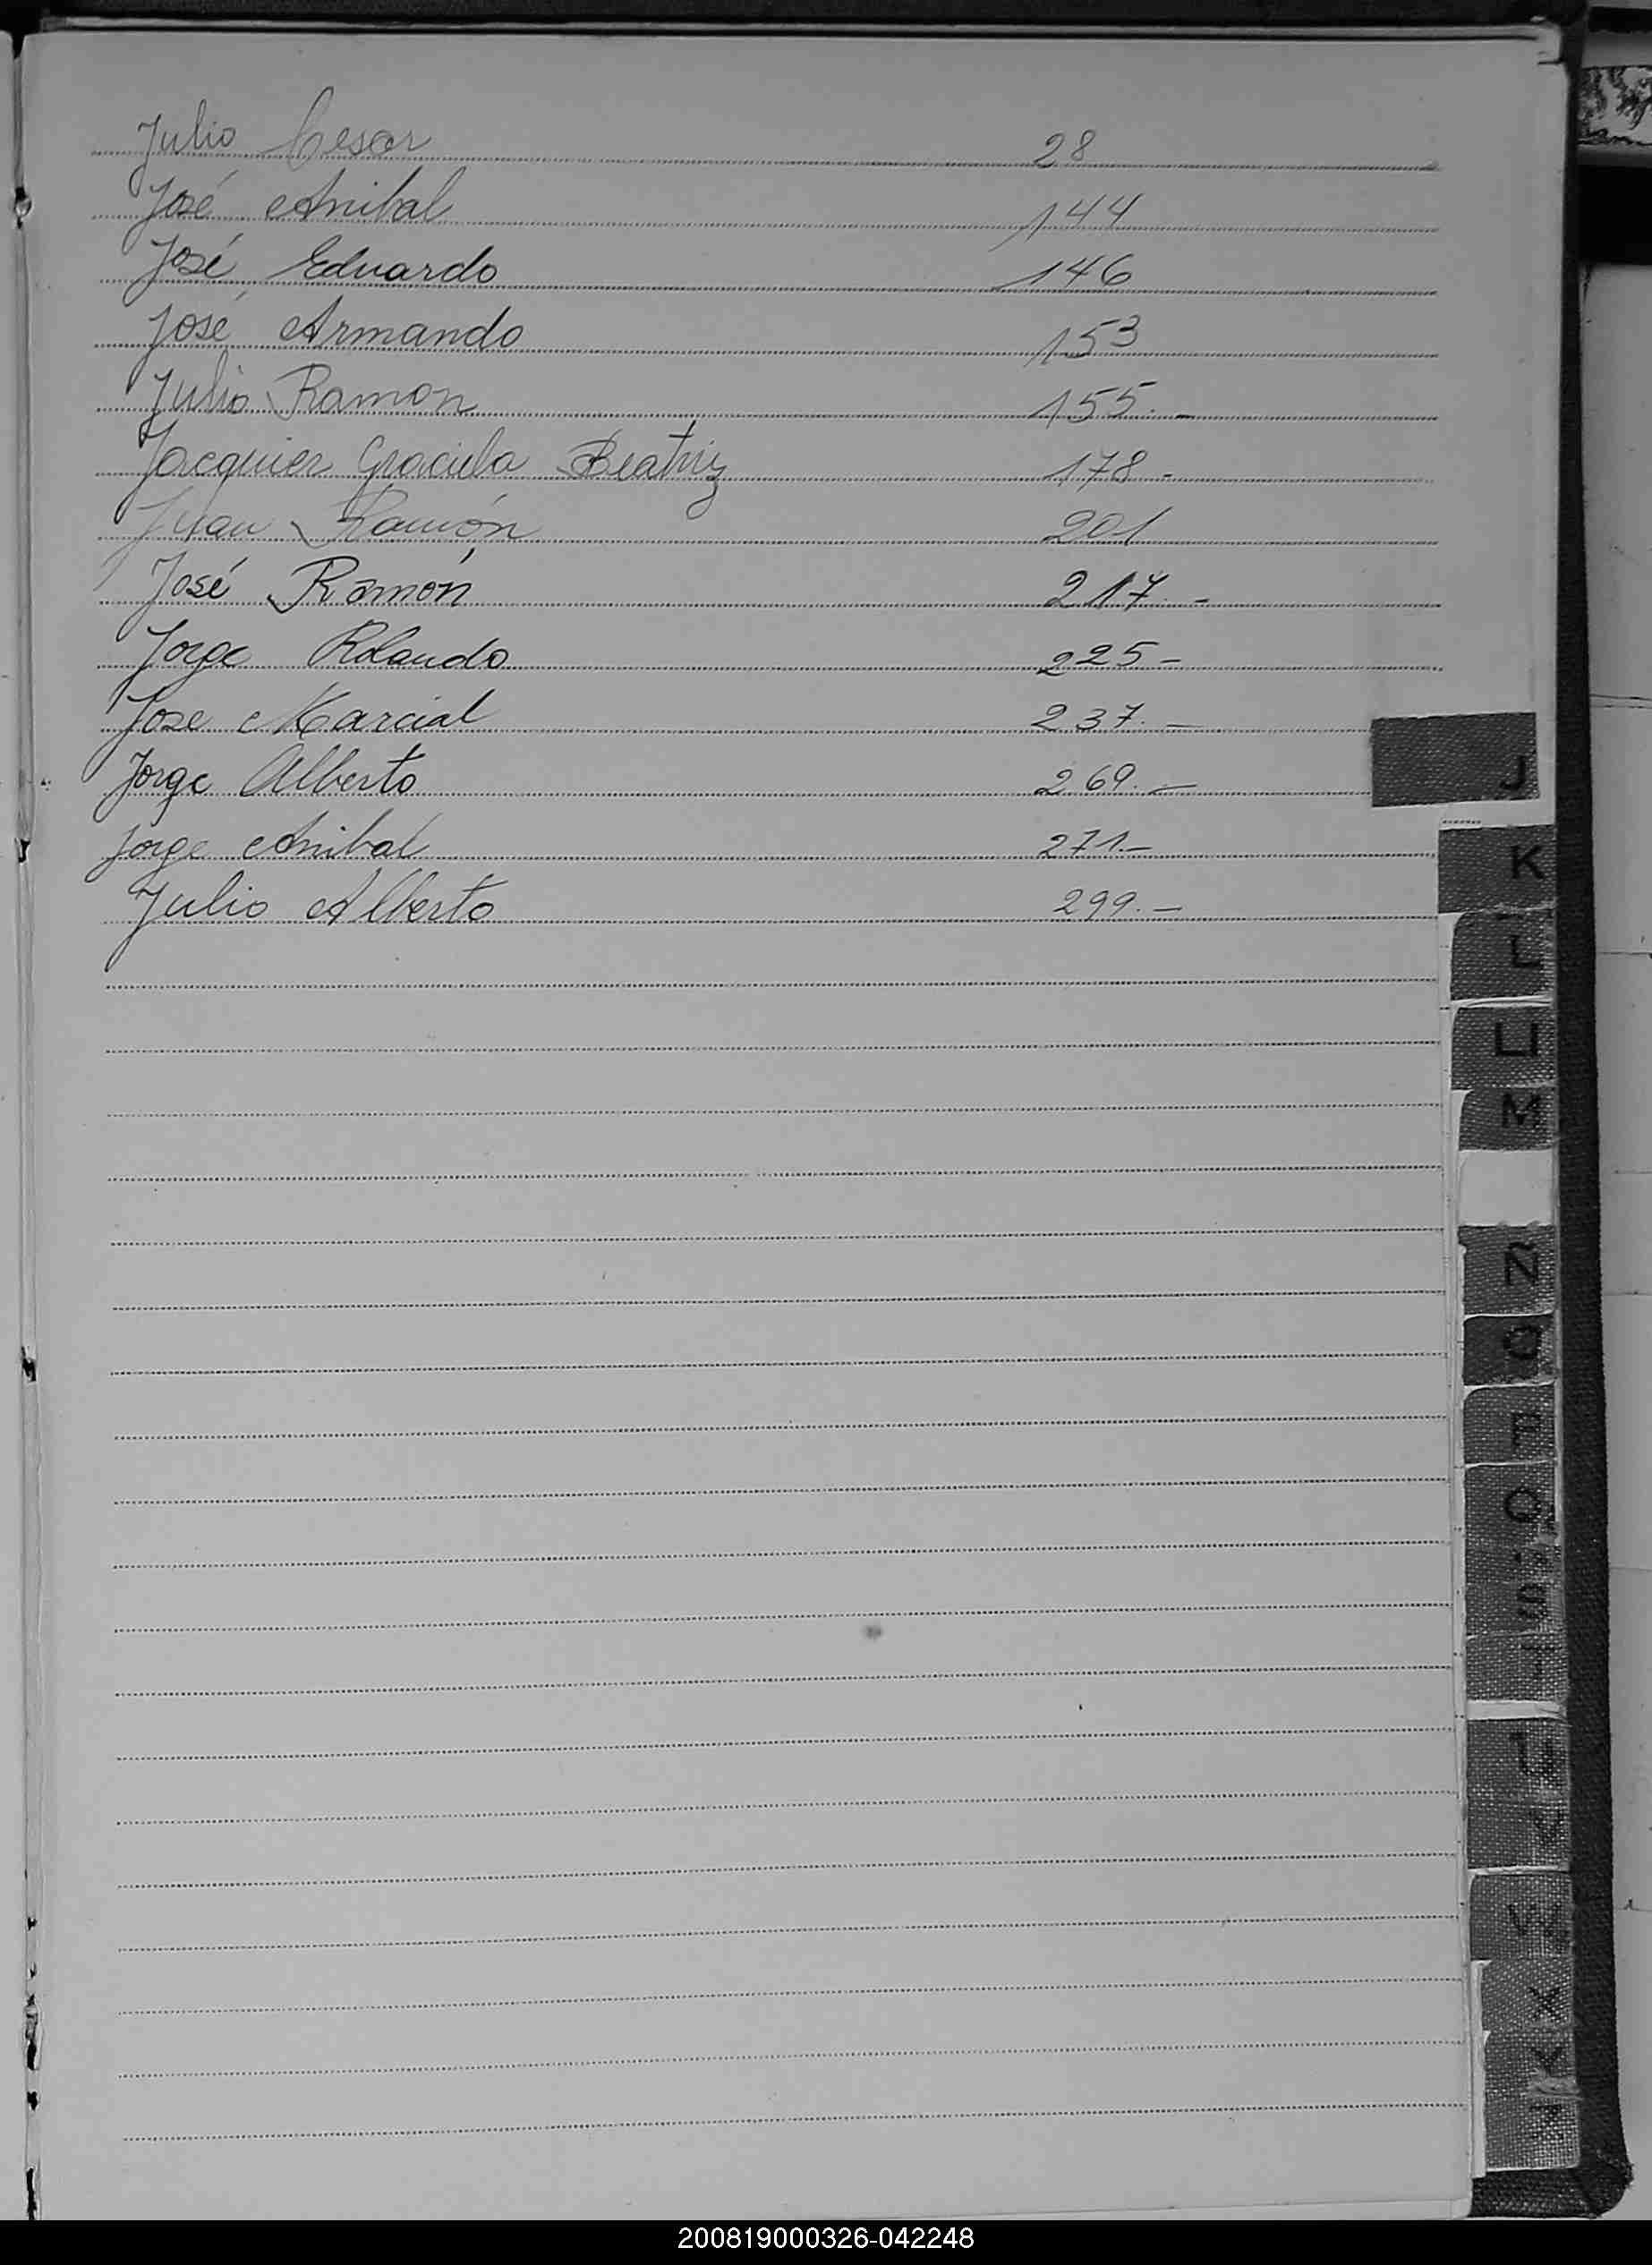 Julio Cesar 28
José Anibal 144
José Eduardo 146
José Armando 153
Julio Ramon 155.-
Jacquier Graciela Beatriz 178-
Juan Ramón 201
José Ramón 217.-
Jorge Rolando 225-
Jose Marcial 237.-
Jorge Alberto 269.-
Jorge Anibal 271.-
Julio Alberto 299.-
J
K
L
LL
M
Ñ
O
P
Q
S
T
U
V
W
X
Y
200819000326-042248